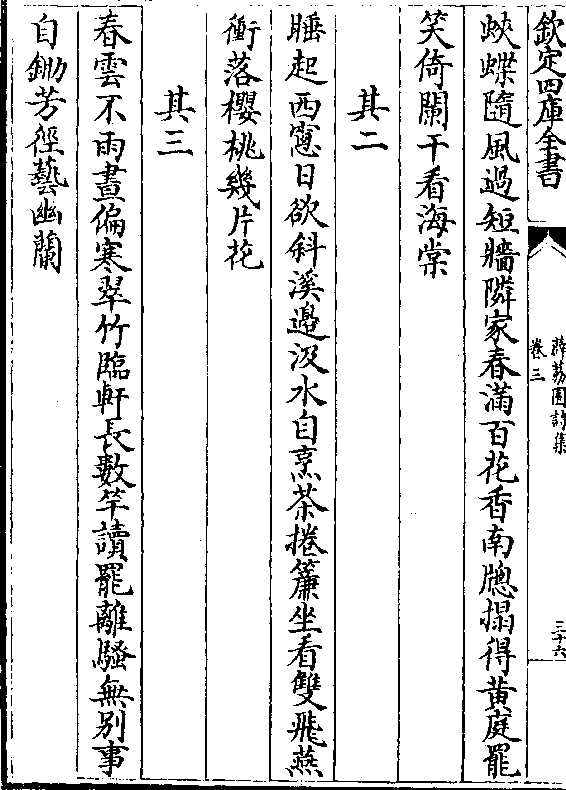 欽定四庫全書
薜荔園詩集
卷三
三十六
蛺蝶隨風過短牆隣家春滿百花香南牕搨得黄庭罷
笑倚闌干看海棠
其二
睡起西窻日欲斜溪邉汲水自烹茶捲簾坐看雙飛燕
衝落櫻桃幾片花
其三
春雲不雨晝偏寒翠竹臨軒長數竿讀罷離騷無别事
自鋤芳徑藝幽蘭